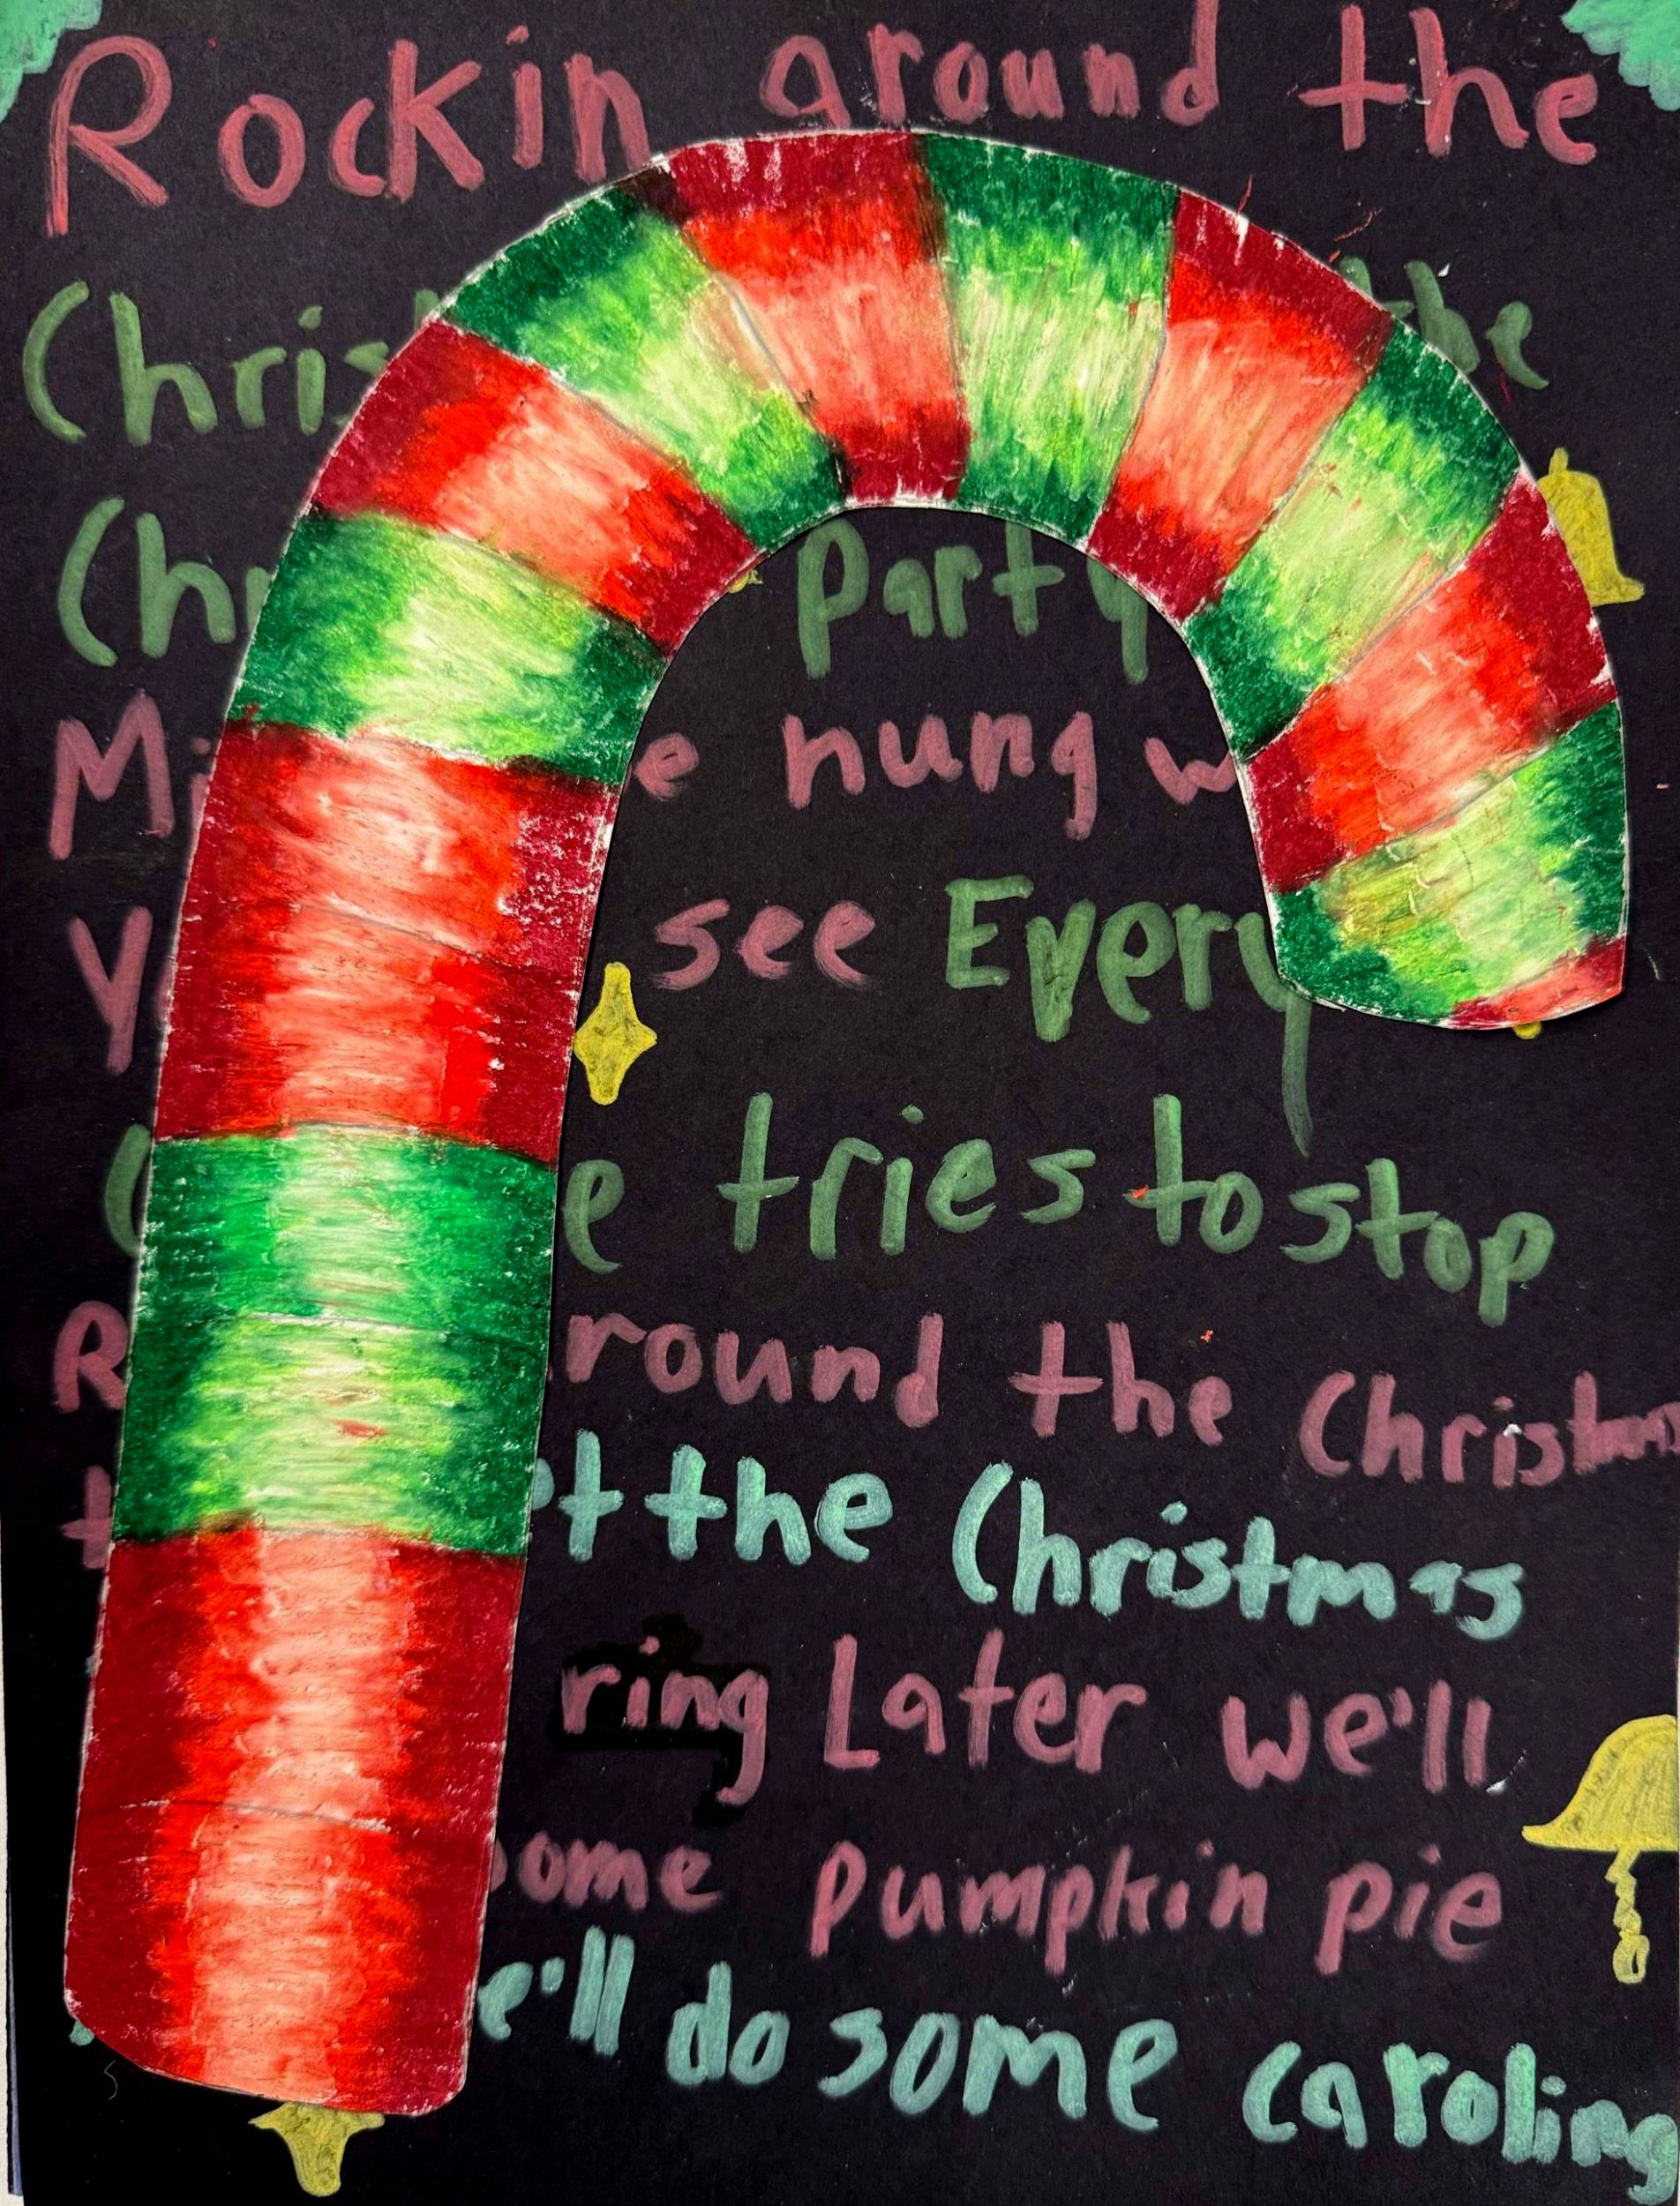 Rockin around the
Chris the
Ch Party
Mi e hung w
Y see Every
e tries to stop
R round the Christmas
t t the Christmas
ring Later we'll
ome Pumpkin pie
e'll do some caroling